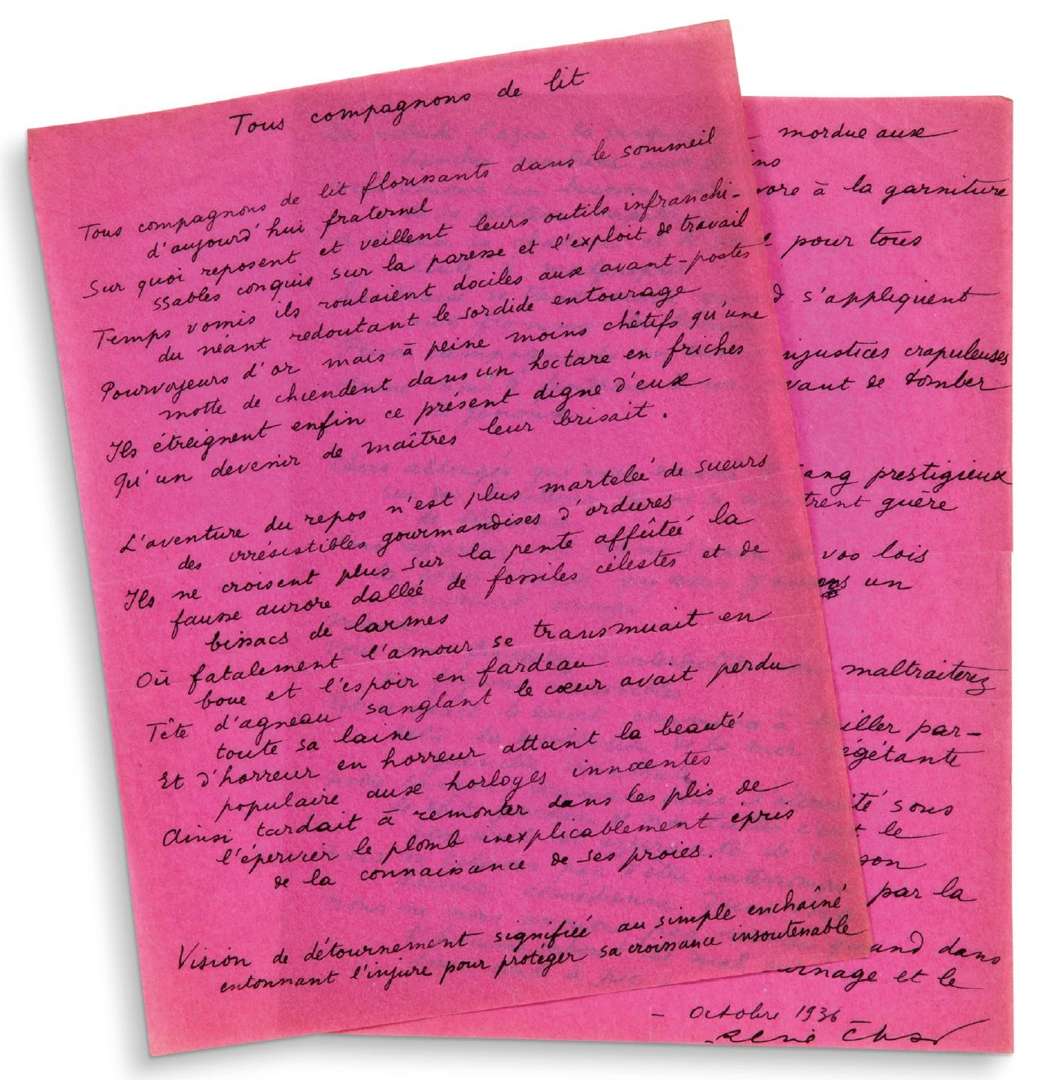 Tous compagnons de lit
Tous compagnons de lit florissants dans le sommeil
d'aujourd'hui fraternel
Sur quoi reposent et veillent leurs outils infranchi-
ssables conquis sur la paresse et l'exploit de travail
Temps vomis ils roulaient dociles aux avant-postes
du néant redoutant le sordide entourage
Pourvoyeurs d'or mais à peine moins chétifs qu'une
motte de chiendent dans un hectare en friches
Ils étreignent enfin ce présent digne d'eux
Qu'un devenir de maîtres leur brisait.
L'aventure du repos n'est plus martelée de sueurs
des irrésistibles gourmandises d'ordures
Ils ne croisent plus sur la pente affûtée la
fausse aurore dallée de fossiles célestes et de
bissacs de larmes
Où fatalement l'amour se transmuait en
boue et l'espoir en fardeau
Tête d'agneau sanglant le cœur avait perdu
toute sa laine
Et d'horreur en horreur attaint la beauté
populaire aux horloges innocentes
Ainsi tardait à remonter dans les plis de
l'épervier le plomb inexplicablement épris
de la connaissance de ses proies.
Vision de détournement signifiée au simple enchaîné
entonnant l'injure pour protéger sa croissance insoutenable
mordue aux
à la garniture
pour tous
s'appliquent
njustices crapuleuses
vant de tomber
ang prestigieux
trent guère
vos lois
un
maltraiterez
iller par-
égétante
ité sous
le
son
par la
and dans
rnage et le
- Octobre 1936
René Char